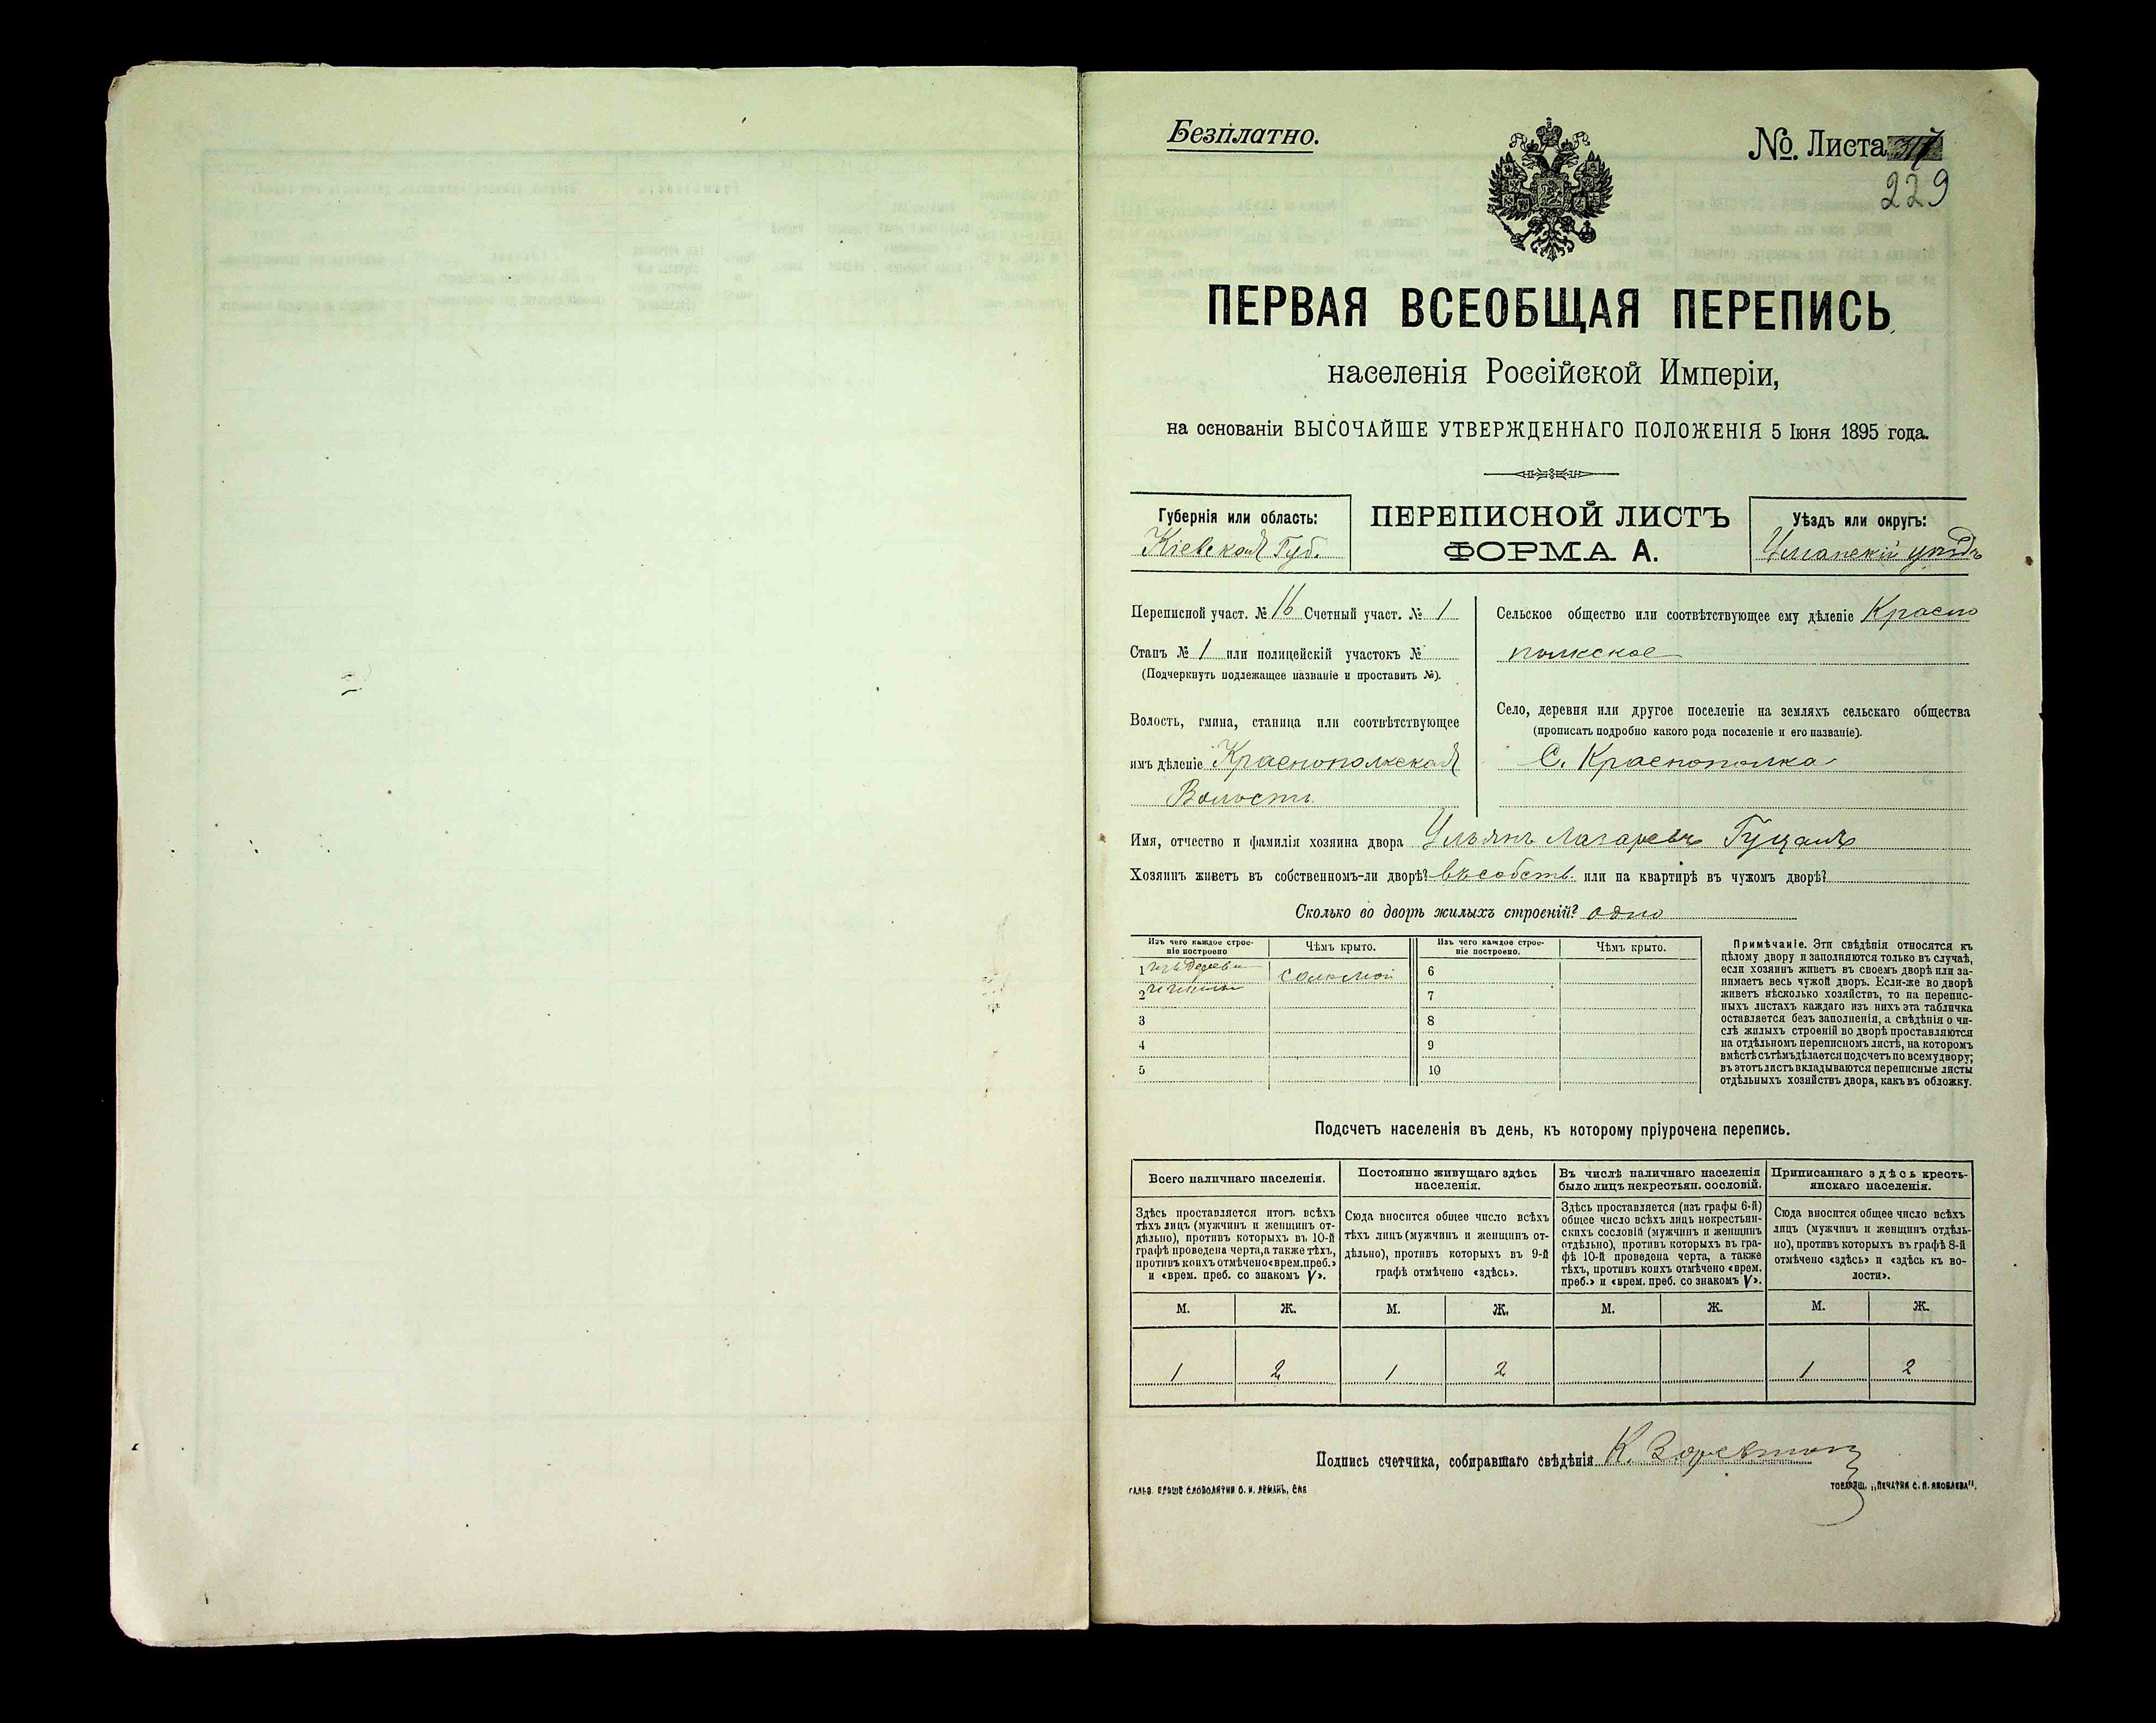 Безплатно.
№. Листа
229
ПЕРВАЯ ВСЕОБЩАЯ ПЕРЕПИСЬ
населенія Россійской Имперіи,
на основаніи ВЫСОЧАЙШЕ УТВЕРЖДЕННАГО ПОЛОЖЕНІЯ 5 Іюня 1895 года.
Губернія или область:
Кіевская Губ.
ПЕРЕПИСНОЙ ЛИСТЪ
ФОРМА А.
Уѣздъ или округъ:
Уманскій уѣздъ
Переписной участ. № 16 Счетный участ. № 1
Станъ № 1 или полицейскій участокъ №
(Подчеркнуть подлежащее названіе и проставить №).
Волость, гмина, станица или соотвѣтствующее
имъ дѣленіе Краснополкская
Волость
Сельское общество или соотвѣтствующее ему дѣленіе Красно
полкское
Село, деревня или другое поселеніе на земляхъ сельскаго общества
(прописать подробно какого рода поселеніе и его названіе).
С. Краснополка
Имя, отчество и фамилія хозяина двора Ульянъ Лазаревъ Гуцалъ
Хозяинъ живетъ въ собственномъ-ли дворѣ? въ собств. или на квартирѣ въ чужомъ дворѣ?
Сколько во дворѣ жилыхъ строеній? одно
Изъ чего каждое строе-
ніе построено
Чѣмъ крыто.
Изъ чего каждое строе-
ніе построено.
Чѣмъ крыто.
1 изъ дерева соломой 6
2 и глины 7
3 8
4 9
5 10
Примѣчаніе. Эти свѣдѣнія относятся къ
цѣлому двору и заполняются только въ случаѣ,
если хозяинъ живетъ въ своемъ дворѣ или за-
нимаетъ весь чужой дворъ. Если-же во дворѣ
живетъ нѣсколько хозяйствъ, то на перепис-
ныхъ листахъ каждаго изъ нихъ эта табличка
оставляется безъ заполненія, а свѣдѣнія о чи-
слѣ жилыхъ строеній во дворѣ проставляются
на отдѣльномъ переписномъ листѣ, на которомъ
вмѣстѣ съ тѣмъ дѣлается подсчетъ по всему двору;
въ этотъ листъ вкладываются переписные листы
отдѣльныхъ хозяйствъ двора, какъ въ обложку.
Подсчетъ населенія въ день, къ которому пріурочена перепись.
Всего наличнаго населенія.
Здѣсь проставляется итогъ всѣхъ
тѣхъ лицъ (мужчинъ и женщинъ от-
дѣльно), противъ которыхъ въ 10-й
графѣ проведена черта, а также тѣхъ,
противъ коихъ отмѣчено «врем. преб.»
и «врем. преб. со знакомъ V».
Постоянно живущаго здѣсь
населенія.
Сюда вносится общее число всѣхъ
тѣхъ лицъ (мужчинъ и женщинъ от-
дѣльно), противъ которыхъ въ 9-й
графѣ отмѣчено «здѣсь».
Въ числѣ наличнаго населенія
было лицъ некрестьян. сословій.
Здѣсь проставляется (изъ графы 6-й)
общее число всѣхъ лицъ некрестьян-
скихъ сословій (мужчинъ и женщинъ
отдѣльно), противъ которыхъ въ гра-
фѣ 10-й проведена черта, а также
тѣхъ, противъ коихъ отмѣчено «врем.
преб.» и «врем. преб. со знакомъ V».
Приписаннаго здѣсь кресть-
янскаго населенія.
Сюда вносится общее число всѣхъ
лицъ (мужчинъ и женщинъ отдѣль-
но), противъ которыхъ въ графѣ 8-й
отмѣчено «здѣсь» и «здѣсь къ во-
лости».
М. Ж. М. Ж. М. Ж. М. Ж.
1 2 1 2 1 2
Подпись счетчика, собиравшаго свѣдѣнія К.
ТОВАРИЩ. „ПЕЧАТНЯ С. П. ЯКОВЛЕВА".